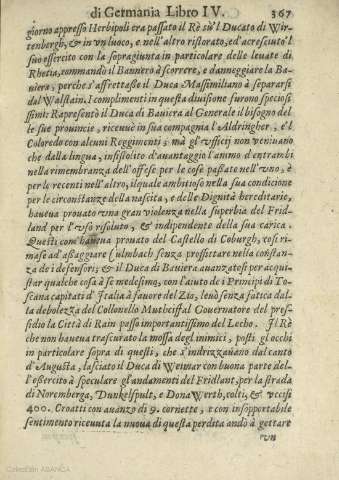 di Germania Libro IV. 367
giorno appresso Herbipoli era passato il Rè sù'l Ducato di Wir-
tenbergh, & in vn luoco, e nell'altro ristorato, ed acresciuto'l
suo essercito con la sopragiunta in particolare delle leuate di
Rhetia, commandò il Bannero à scorrere, e danneggiare la Ba-
uiera, perche s'affrettasse il Duca Massimiliano à separarsi
dal Walstain. I complimenti in questa diuisione furono speciosi
ssimi: Rapresentò il Duca di Bauiera al Generale il bisogno del
le sue prouincie, riceuuè in sua compagnia l'Aldringher, e'l
Coloredo con alcuni Reggimenti; mà gl'vfficij non veniuano
che dalla lingua, infistolito d'auantaggio l'animo d'entrambi
nella rimembranza dell'offese per le cose passate nell'vno, è
per le recenti nell'altro, ilquale ambitioso nella sua condicione
per le circonstanze della nascita, e delle Dignità hereditarie,
haueua prouato vna gran violenza nella superbia del Frid-
land per l'vso risoluto, & independente della sua carica.
Questi com'haueua prouato del Castello di Coburgh, così ri-
mase ad assaggiare Culmbach senza profittare nella constan-
za de i defensori; & il Duca di Bauiera auanzatosi per acqui-
star qualche cosa à se medesimo, con l'aiuto de i Principi di To-
scana capitati d'Italia à fauore del Zio, leuò senza fatica dal-
la debolezza del Collonello Muthciff al Gouernatore del pre-
sidio la Città di Rain passo importantissimo del Lecho. Il Rè
che non haueua trascurato la mossa degl'inimici, posti gl'occhi
in particolare sopra di questi, che s'indrizzauano dal canto
d'Augusta, lasciato il Duca di Weimar con buona parte del-
l'essercito à speculare gl'andamenti del Fridlant, per la strada
di Noremberga, Dunkelspult, e Dona Werth, colti, & vccisi
400. Croatti con auanzo di 9. cornette, e con insopportabile
sentimento riceuuta la nuoua di questa perdita andò à gettare
vn
Colección ABANCA